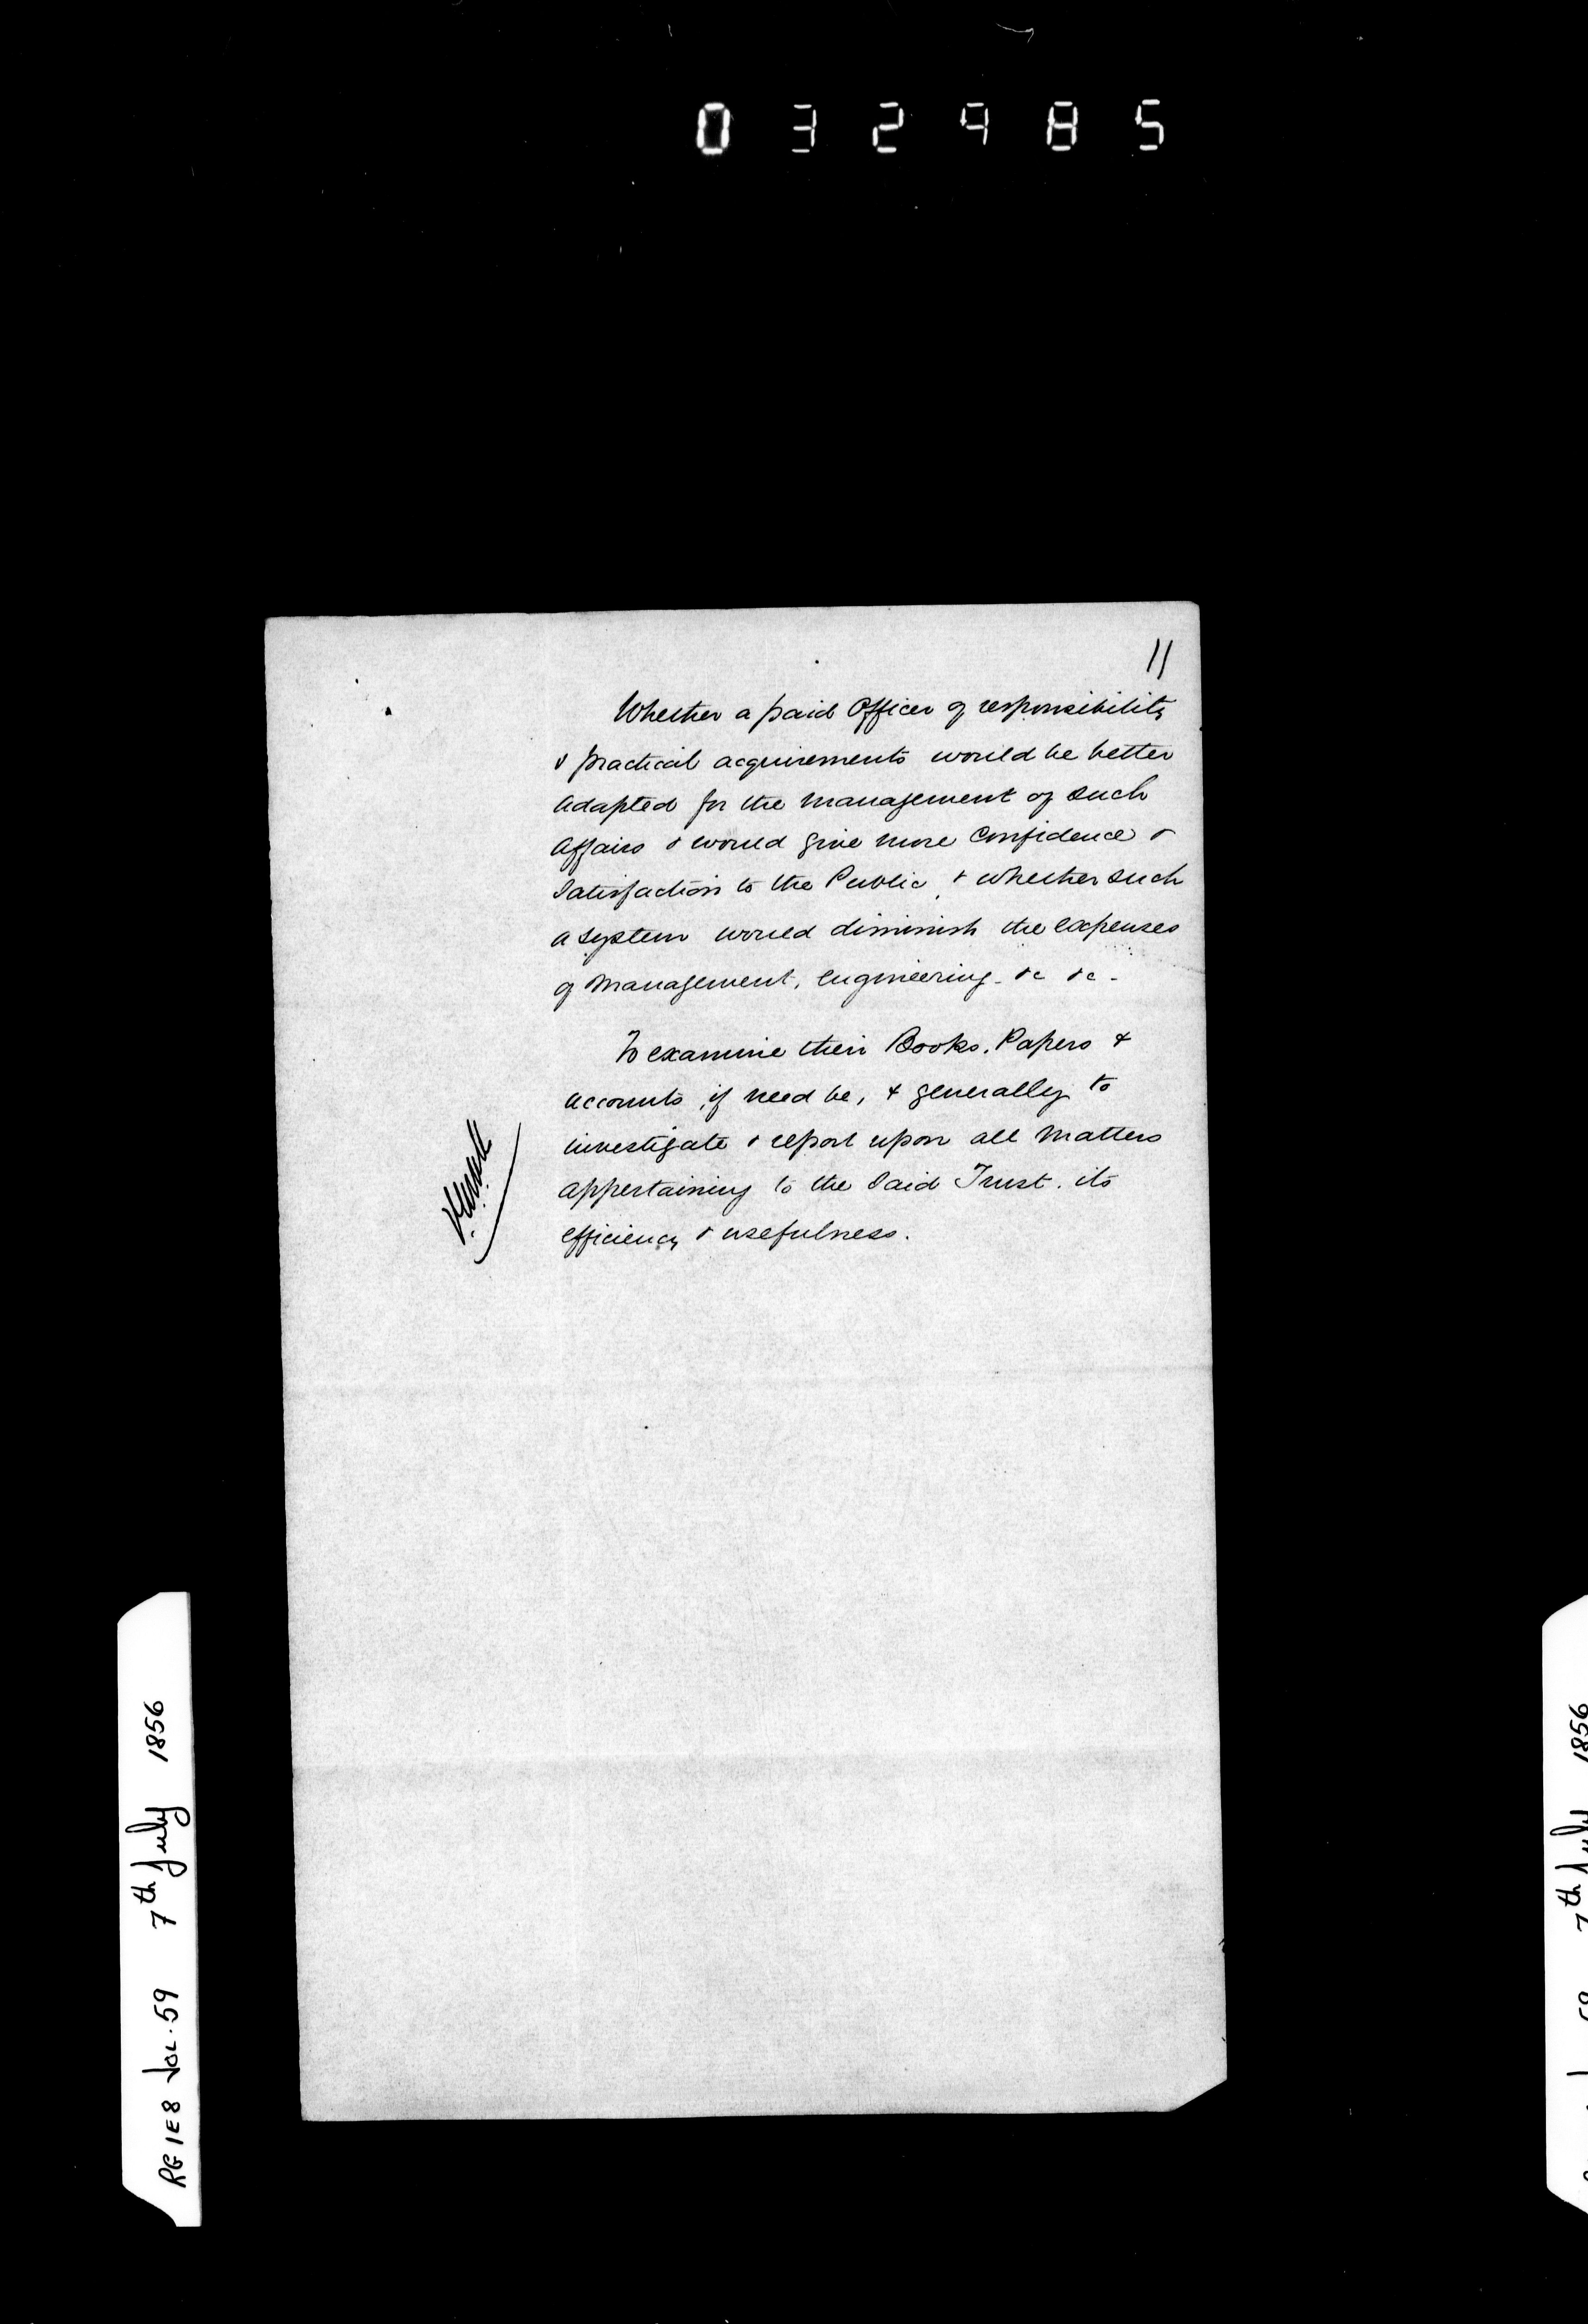 032985
11
Whether a paid Officer of responsibility
& practical acquirements would be better
adapted for the management of such
affairs & would give more confidence &
satisfaction to the Public, & whether such
a system would diminish the expenses
of management, engineering - &c &c -
To examine their Books, Papers &
accounts, if need be, & generally to
investigate & report upon all matters
appertaining to the said Trust, its
efficiency & usefulness.
RG 1E8 Vol. 59 7th July 1856
7th July 1856